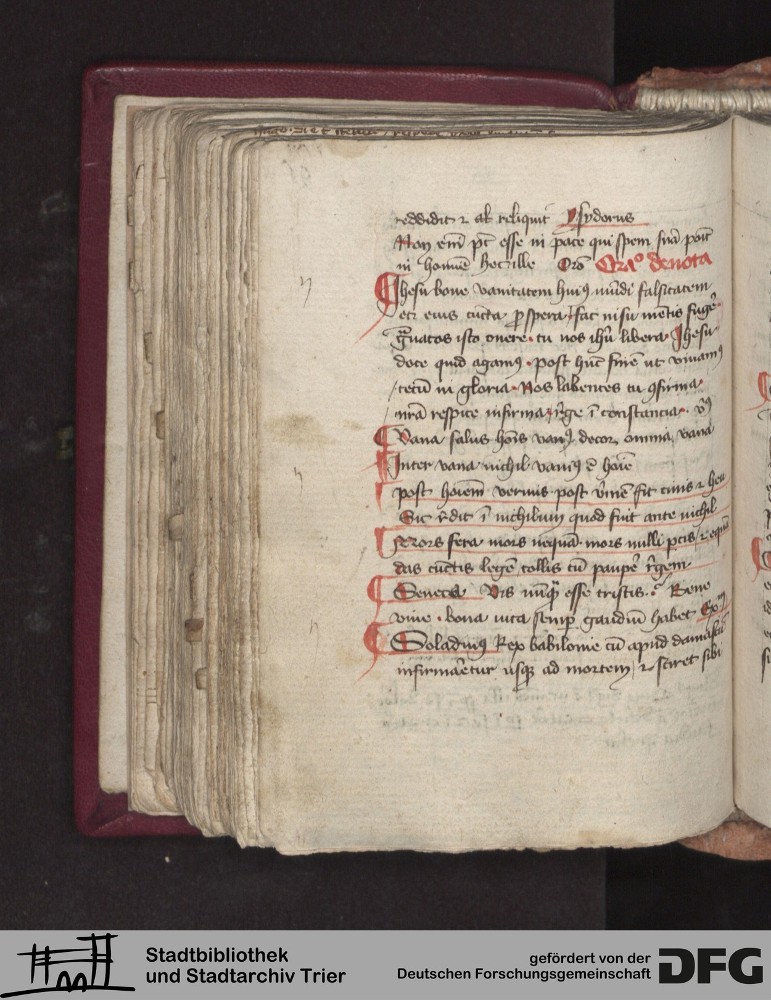 reddidit ⁊ al reliquit Ysydorus
Non em̄ pt̄ esse in pace qui spem suā poīt
in homīē hec ille Orō Orāo deuota
Ihesu bone vanitatem huiꝰ mūdi falsitatem
eius cūcta ꝓspera fac nisu mētis fugeꝛ
Gͣuatos isto onere tu nos ihū libera Ihesu
doce quid agamꝰ post hūc finē ut viuamꝰ
tecū in gloria Nos labentes tu ꝯfirma
nr̄a respice infirma ī constancia
Vana salus hoīs vanꝰ decor omnia vana
Inter vana nichil vaniꝰ ē hoīe
post hoīem vermis post vermē fit cinis ⁊ heu
Sic redit ī nichilum quod fuit ante nichil
Mors fera mors nequā mors nulli ꝑcis ⁊ equā
das cūctis legē tollis cū paupē regem
Seneca Vis nūꝙ̄ esse tristis Bene
viue bona uita semꝑ gaudiū habet Exm̄
Soladinꝰ Rex babilonie cū apud damascū
infirmaretur usqꝫ ad mortem ⁊ sciret sibi
Stadtbibliothek
und Stadtarchiv Trier
gefördert von der
Deutschen Forschungsgemeinschaft
DFG